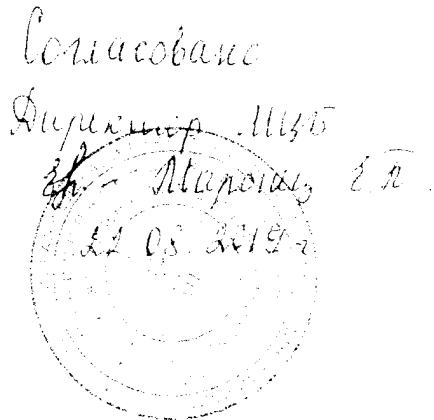 Согласовано
Директор МЦБ
Е.П.
22.08.2019 г